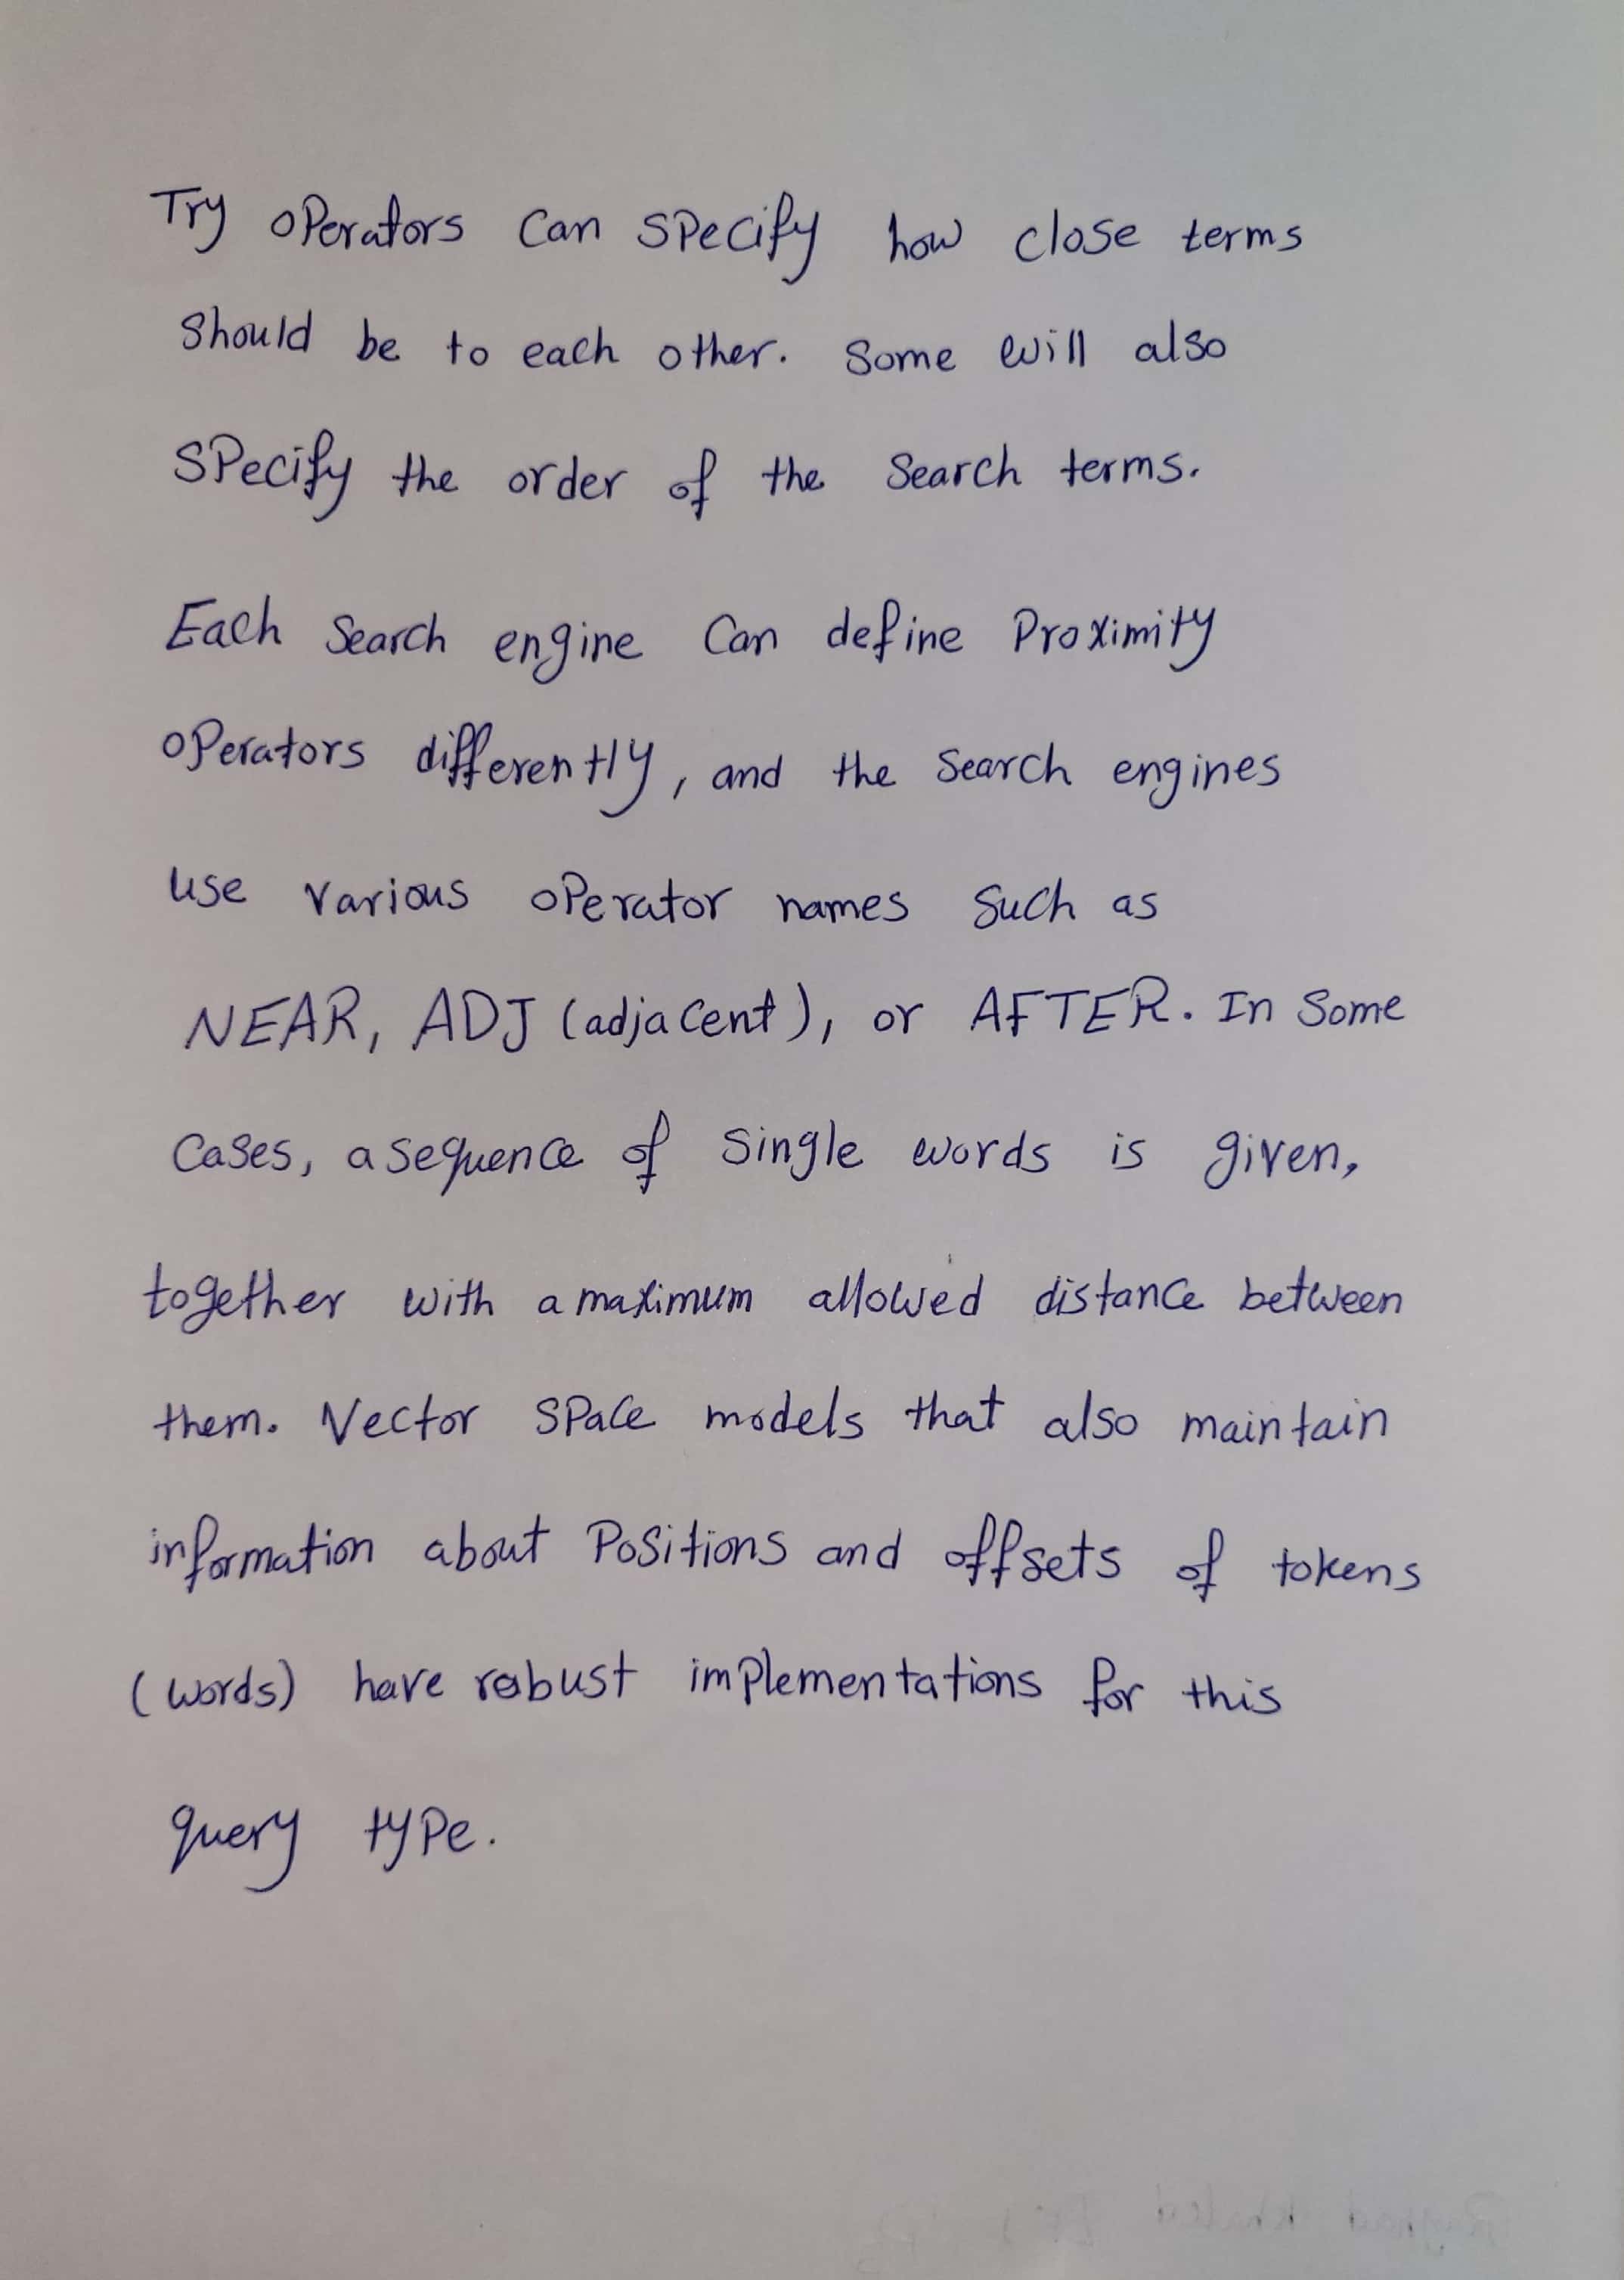 Try operators can specify how close terms
should be to each other. Some will also
specify the order of the search terms.
Each search engine can define proximity
operators differently, and the search engines
use various operator names such as
NEAR, ADJ (adjacent), or AFTER. In some
cases, a sequence of single words is given,
together with a maximum allowed distance between
them. Vector space models that also maintain
information about positions and offsets of tokens
(words) have robust implementations for this
query type.